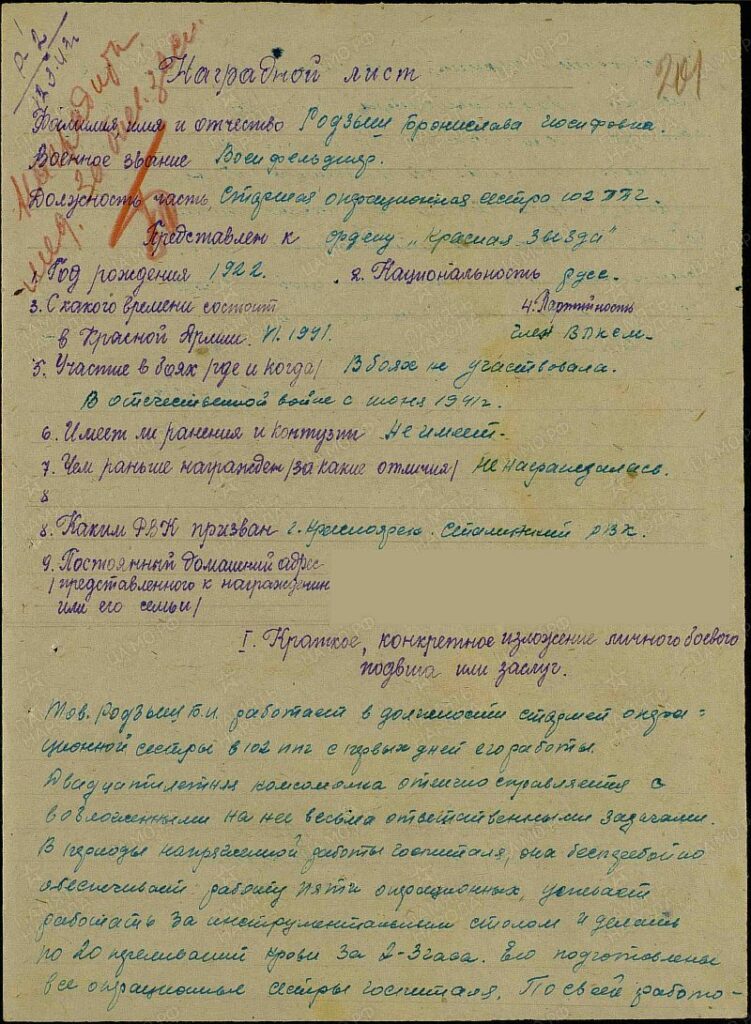 201
Наградной лист
Фамилия имя и отчество Родзыш Бронислава Иосифовна.
Военное звание Военфельдшер.
Должность часть, Старшая операционная сестра 102 ППГ.
Представлен к ордену „Красная Звезда"
1. Год рождения 1922. 2. Национальность русс.
3. С какого времени состоит 4. Партийность
в Красной Армии. VI. 1941. член ВЛКСМ.
5. Участие в боях /где и когда/ В боях не участвовала.
В отечественной войне с июня 1941г.
6. Имеет ли ранения и контузии Не имеет.
7. Чем раньше награжден /за какие отличия/ Не награждалась.
8
8. Каким РВК призван г. Красноярск. Сталинский РВК.
9. Постоянный домашний адрес
/представленного к награждению
или его семьи/
I. Краткое, конкретное изложение личного боевого
подвига или заслуг.
Тов. Родзыш Б.И. работает в должности старшей опера=
ционной сестры в 102 ппг с первых дней его работы.
Двадцатилетняя комсомолка отлично справляется с
возложенными на нее весьма ответственными задачами.
В периоды напряженной работы госпиталя, она бесперебойно
обеспечивает работу пяти операционных, успевает
работать за инструментальным столом и делать
по 20 переливаний крови за 2-3 часа. Ею подготовлены
все операционные сестры госпиталя. По своей работо-